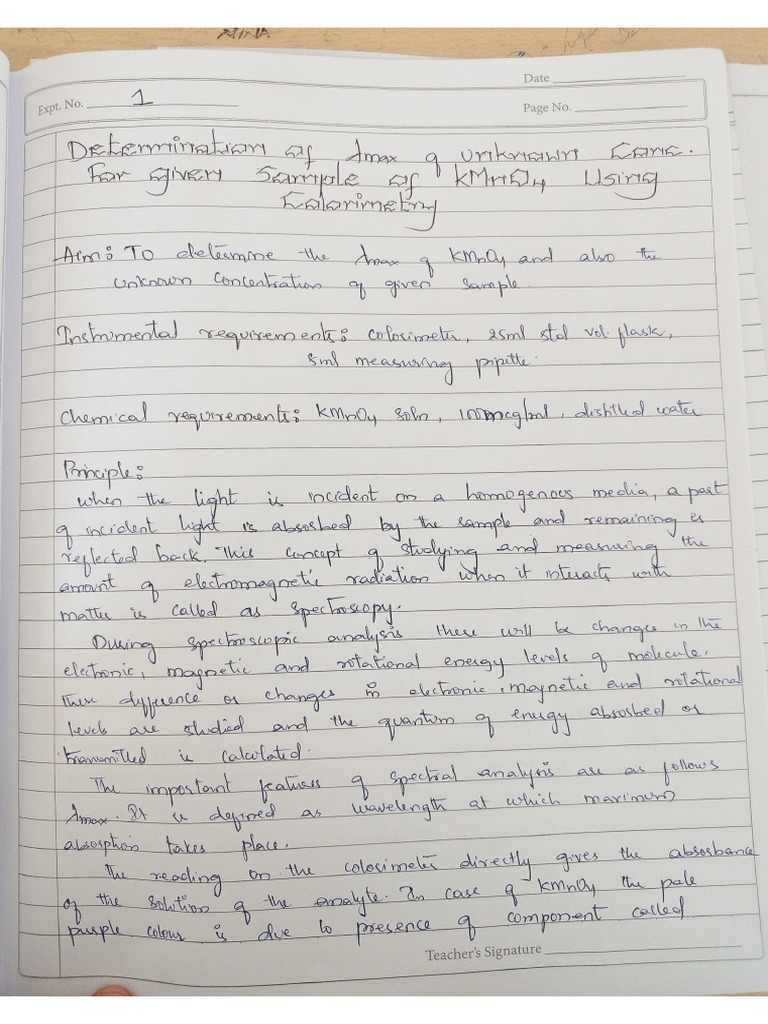 Date
Expt. No. 1
Page No.
Determination of λmax of unknown Conc.
For given Sample of KMnO4 Using
Colorimetry
Aim: To determine the λmax of KMnO4 and also the
unknown concentration of given sample.
Instrumental requirements: colorimeter, 25ml std vol. flask,
5ml measuring pipette.
Chemical requirements: KMnO4 soln, 100mcg/ml, distilled water
Principle:
when the light is incident on a homogenous media, a part
of incident light is absorbed by the sample and remaining is
reflected back. This concept of studying and measuring the
amount of electromagnetic radiation when it interacts with
matter is called as spectroscopy.
During spectroscopic analysis there will be changes in the
electronic, magnetic and rotational energy levels of molecule.
Their difference or changes in electronic, magnetic and rotational
levels are studied and the quantum of energy absorbed or
transmitted is calculated.
The important features of spectral analysis are as follows
λmax. It is defined as wavelength at which maximum
absorption takes place.
The reading on the colorimeter directly gives the absorbance
of the solution of the analyte. In case of KMnO4 the pale
purple colour is due to presence of component called
Teacher's Signature